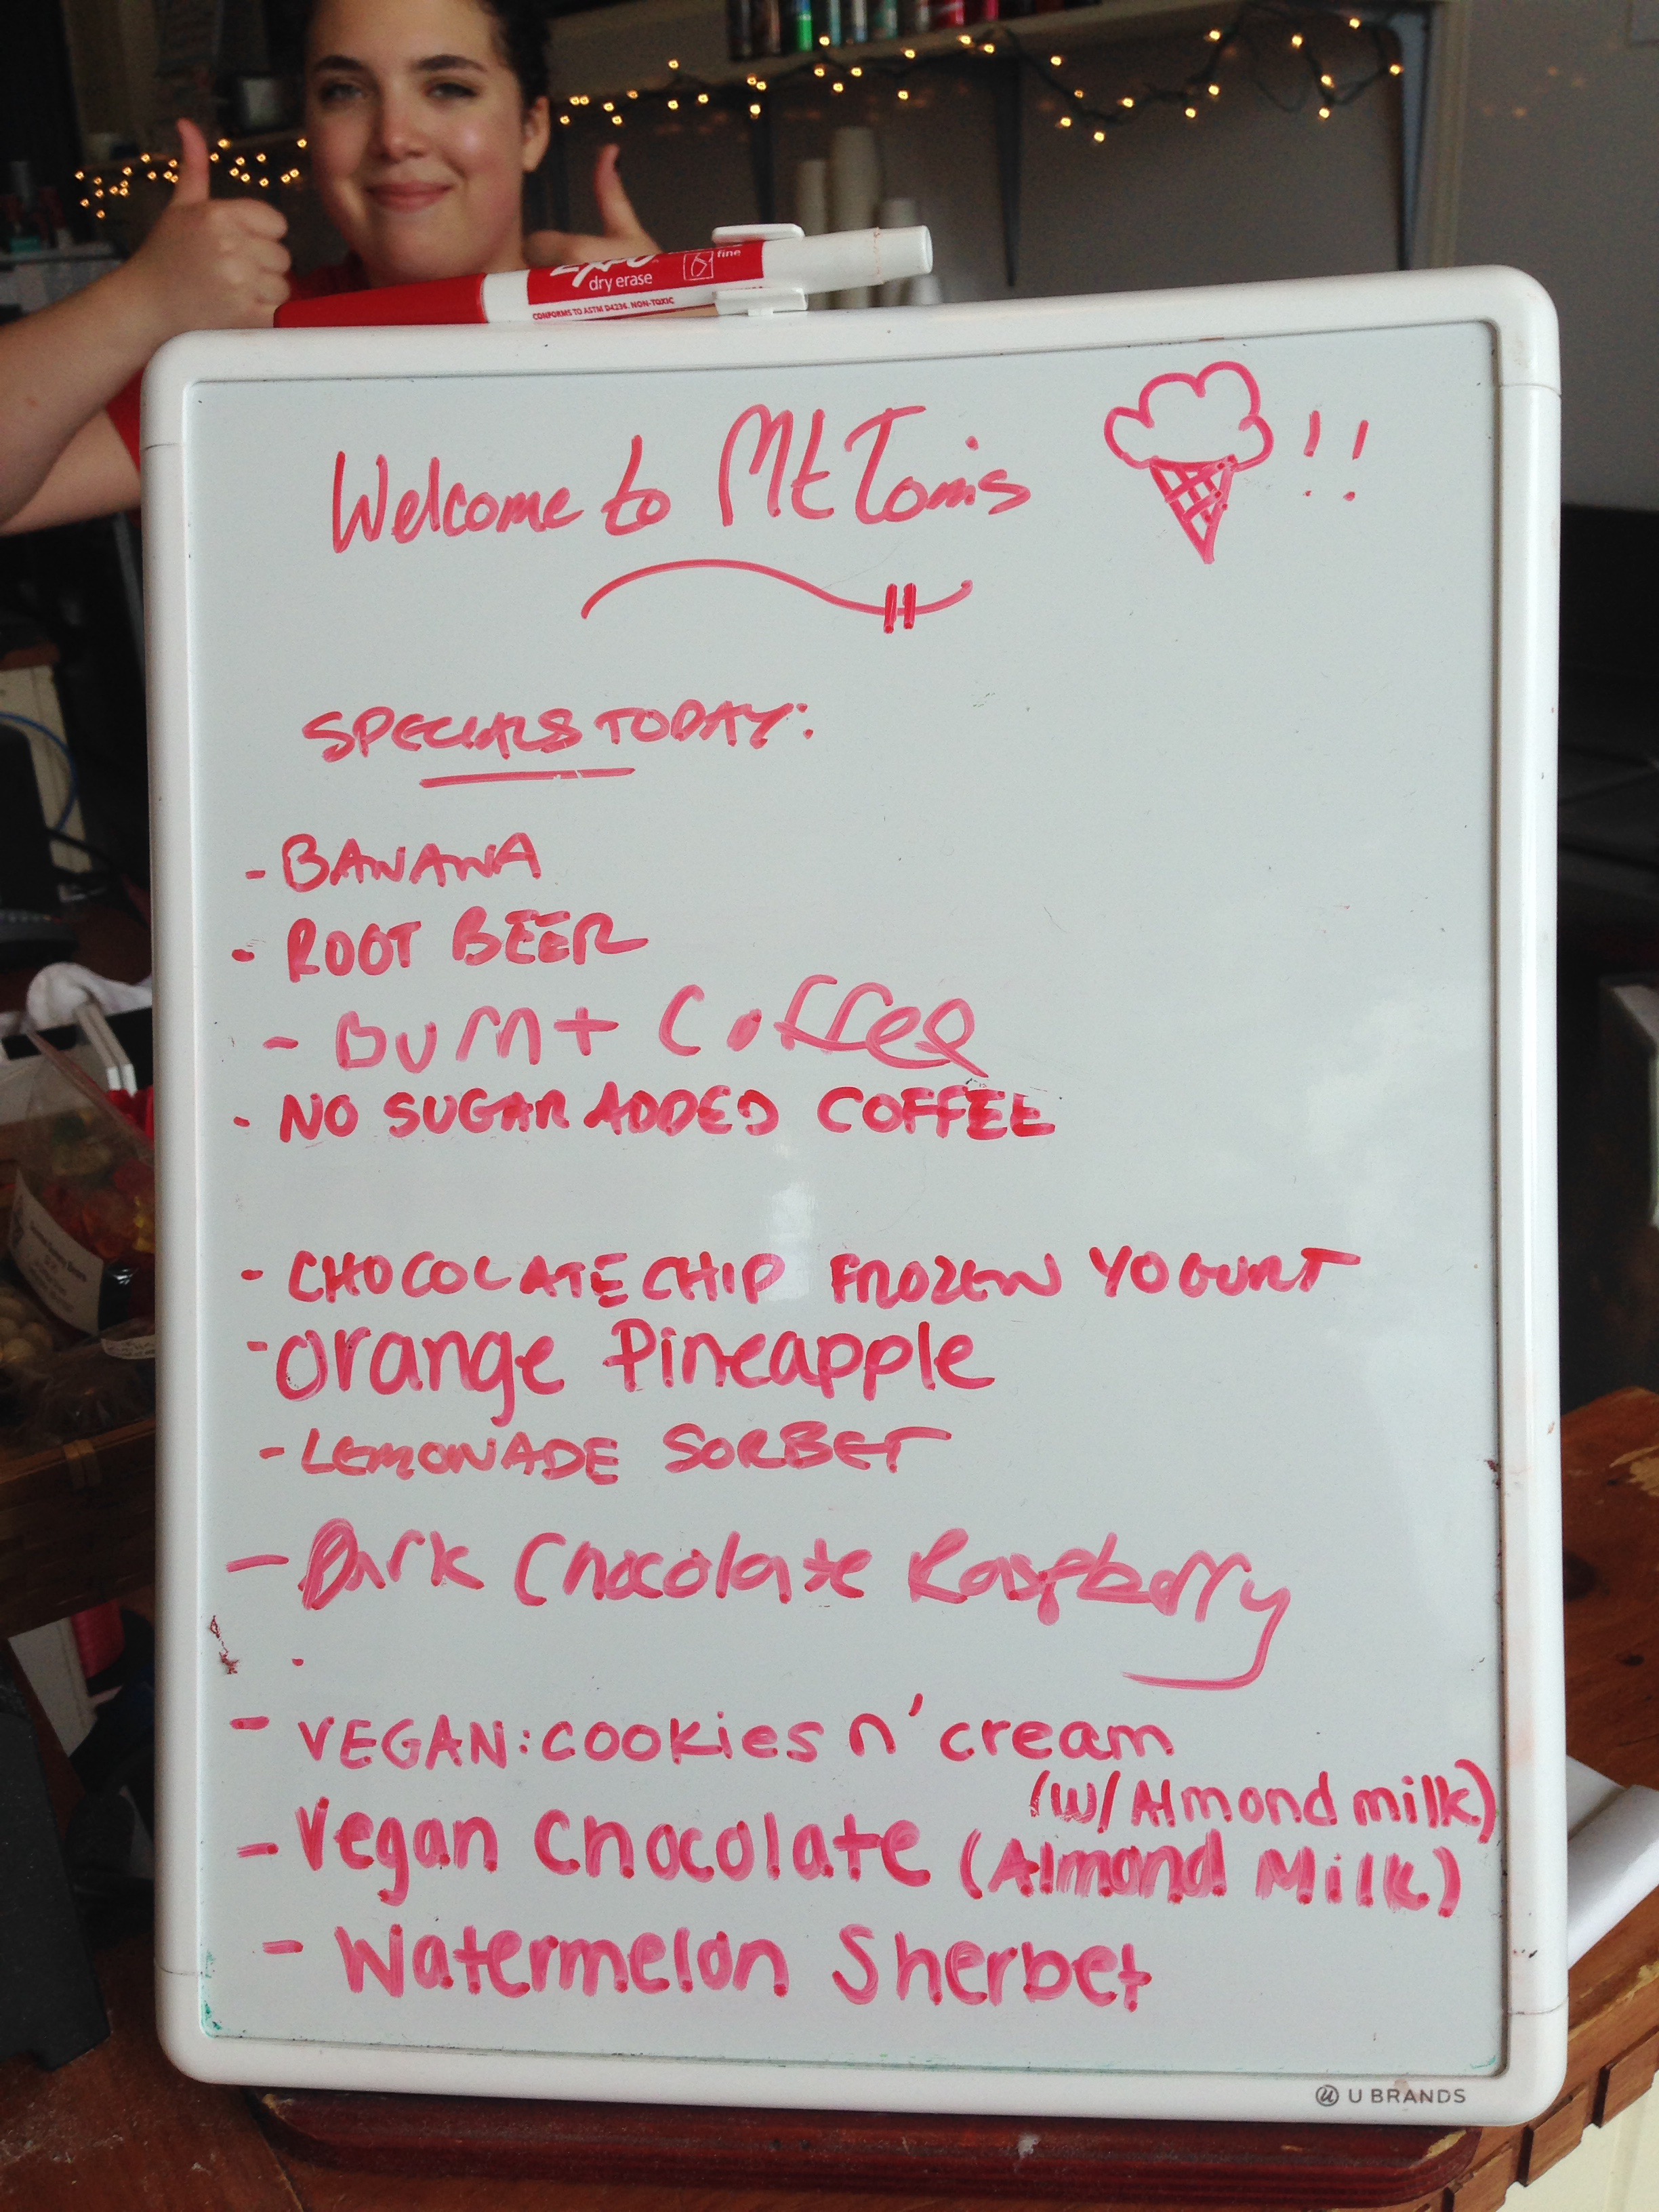 EXPO
dry erase
fine
CONFORMS TO ASTM D4236. NON-TOXIC
Welcome to Mt Tom's !!
SPECIALS TODAY:
- BANANA
- ROOT BEER
- Burnt Coffee
- NO SUGAR ADDED COFFEE
- CHOCOLATE CHIP FROZEN YOGURT
- Orange Pineapple
- LEMONADE SORBET
- Dark Chocolate Raspberry
- VEGAN: COOKIES n' cream
(w/ Almond milk)
- Vegan Chocolate (Almond Milk)
- Watermelon Sherbet
U BRANDS